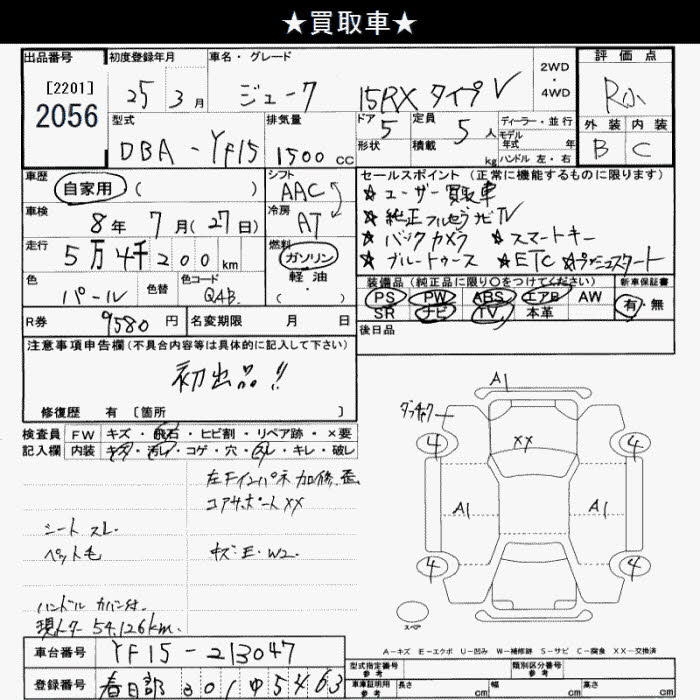 ★買取車★
出品番号
[2201]
2056
初度登録年月
25 3月
車名・グレード
ジューク 15RX タイプV
2WD・4WD
評価点
R
外装 内装
B C
型式
DBA-YF15
排気量
1500cc
ドア 5
形状
定員 5人
積載 kg
ディーラー・並行
モデル年式 年
ハンドル 左・右
車歴
自家用 ( )
シフト
AAC
冷房
AT
車検
8年 7月(27日)
走行
5万4千200km
燃料
ガソリン
軽油
( )
色
パール
色替
色コード
QAB
R券 9580円
名変期限 月 日
セールスポイント(正常に機能するものに限ります)
★ユーザー買取車
★純正フルセグナビTV
★バックカメラ ★スマートキー
★ブルートゥース ★ETC ★プッシュスタート
装備品(純正品に限り○をつけてください)
PS PW ABS エアB AW
SR ナビ TV 本革
新車保証書
有・無
後日品
注意事項申告欄(不具合内容等は具体的に記入して下さい)
初出品!!
修復歴 有 [箇所 ]
検査員記入欄
FW キズ・飛石・ヒビ割・リペア跡・×要
内装 キズ・汚レ・コゲ・穴・スレ・キレ・破レ
左Fインパネ加修、歪
コアサポートXX
シートスレ
ペット毛
キズ・E・W2
ハンドルカバー付
現メーター54,126km
車台番号 YF15-213047
登録番号 春日部 301 ゆ 5463
A1
XX
4
4
A1
A1
4
4
スペア
A-キズ E-エクボ U-凹み W-補修跡 S-サビ C-腐食 XX-交換済
型式指定番号 参考
類別区分番号 参考
車庫証明用 参考 長さ cm 幅 cm 高さ cm